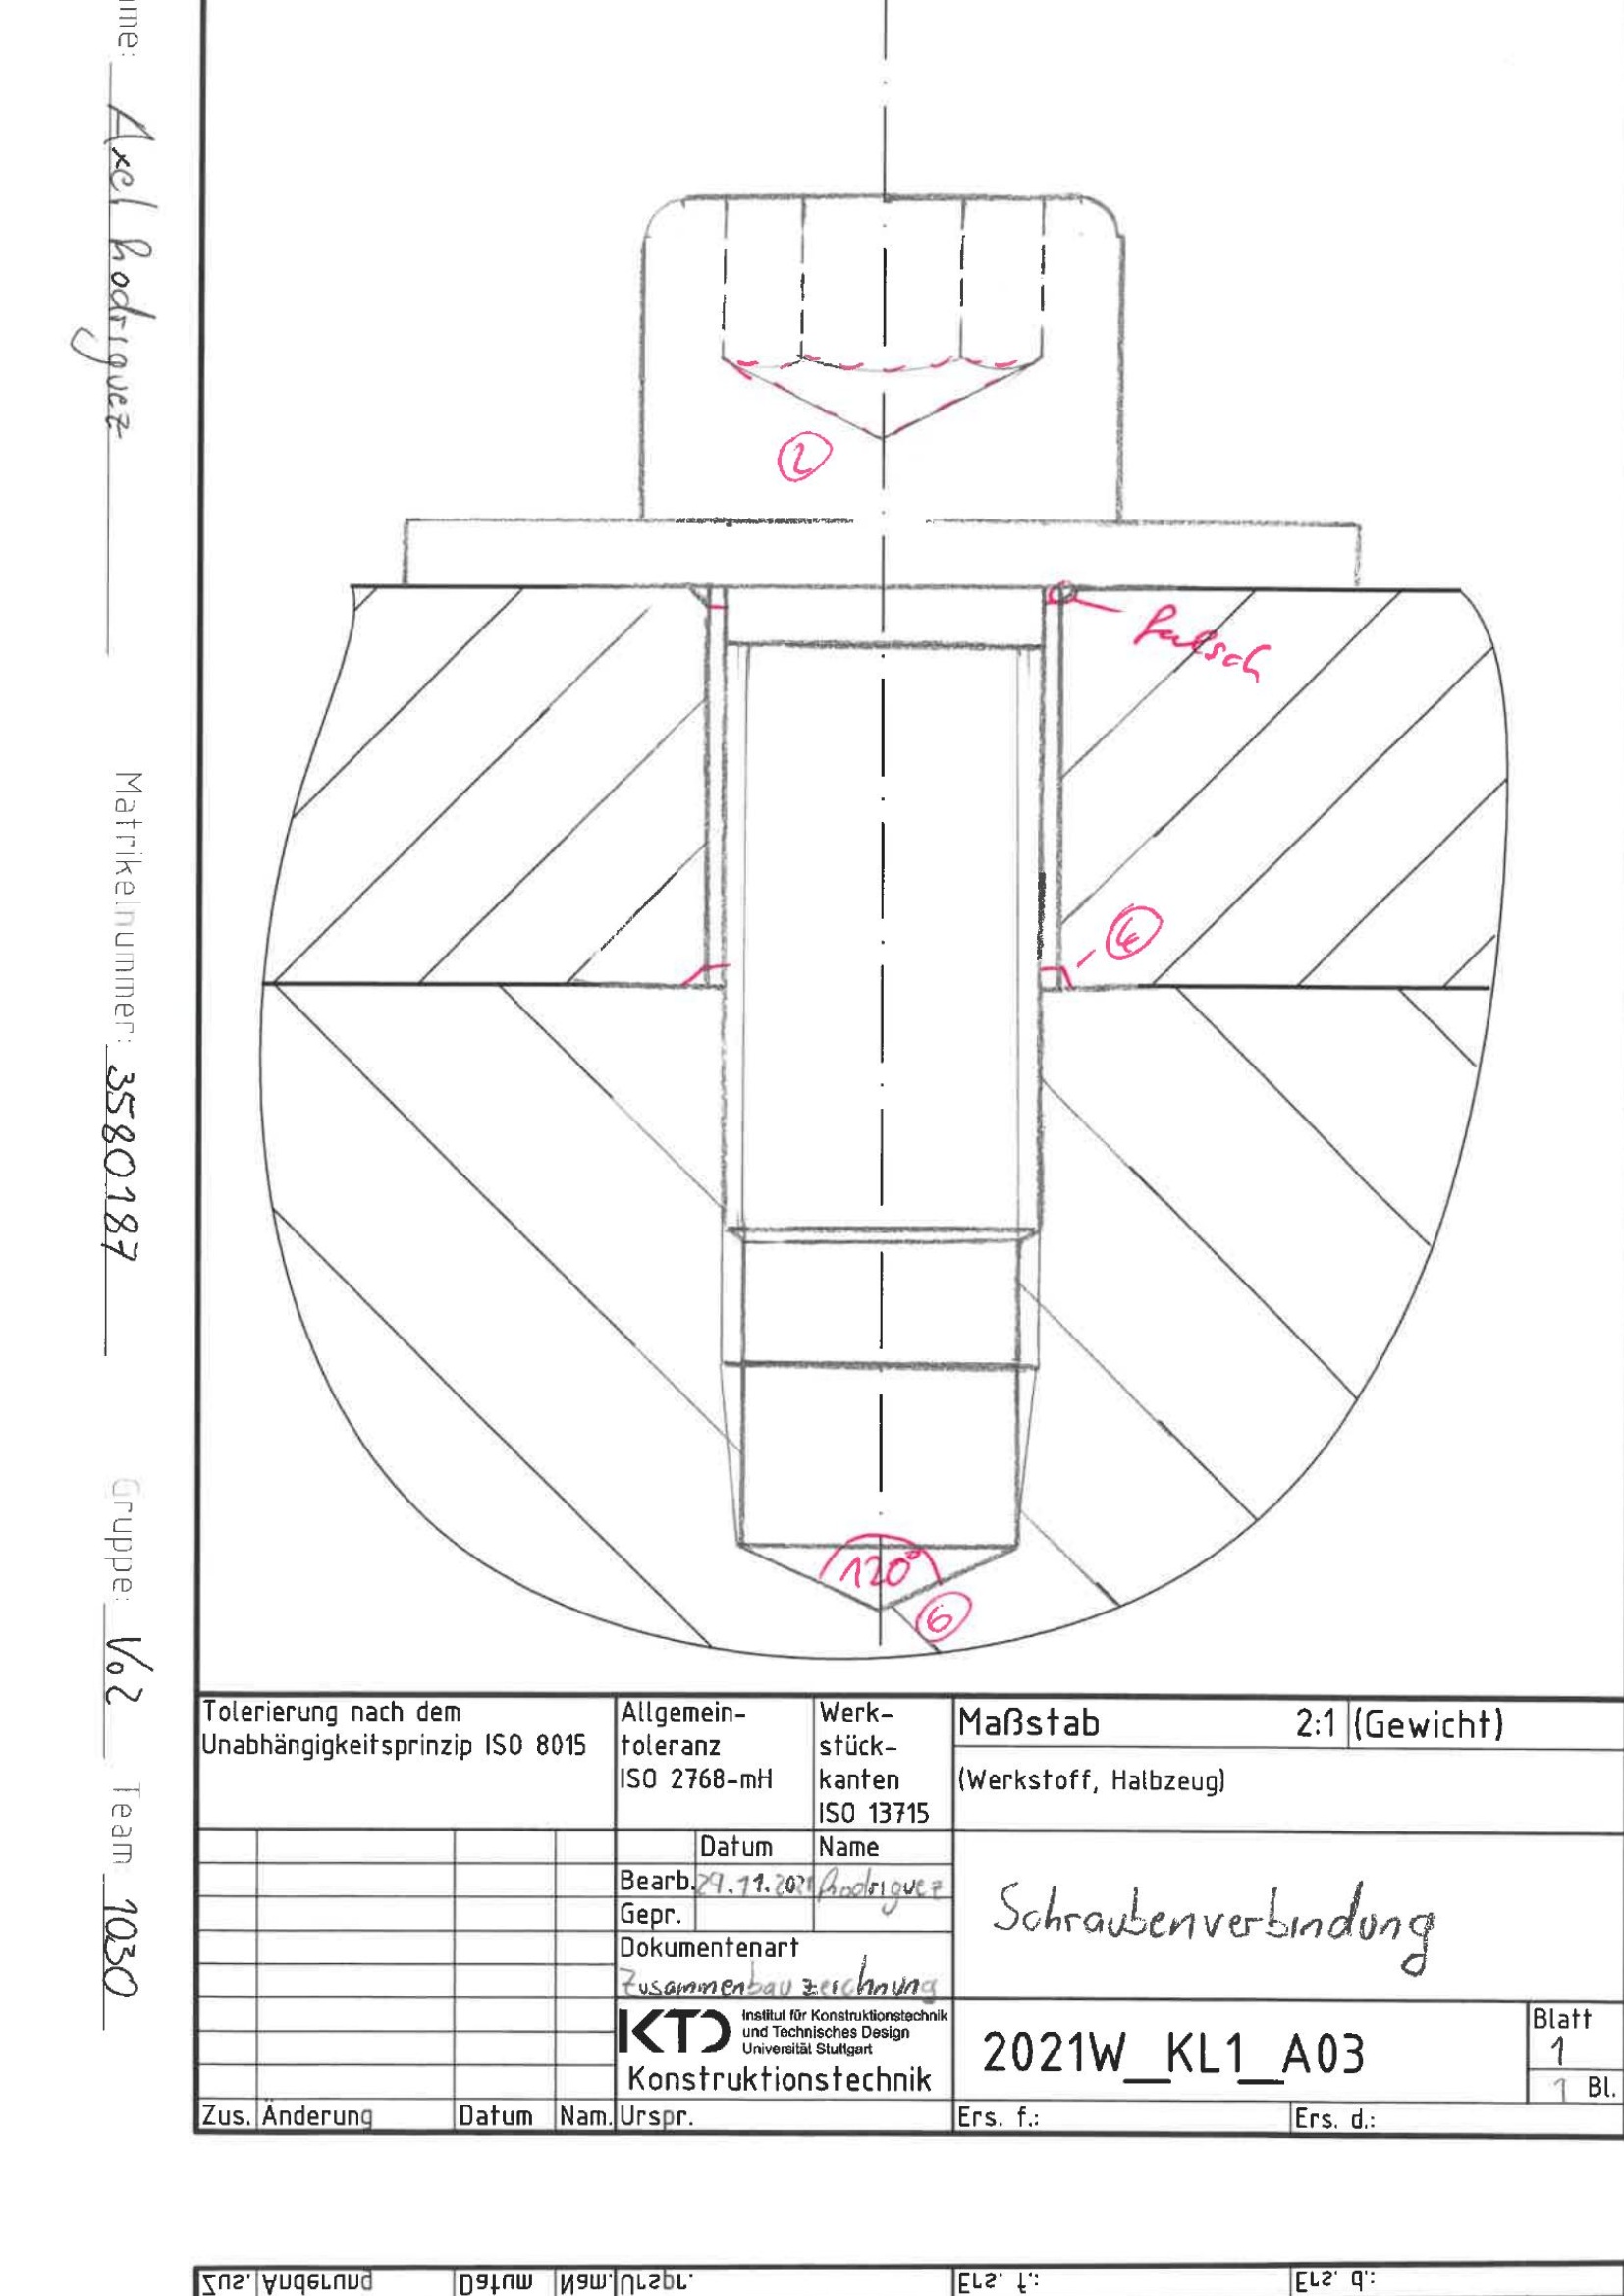 me: Axel Rodriguez
Matrikelnummer: 3580187
Gruppe: V02 Team 1030
2
falsch
120°
6
Tolerierung nach dem
Unabhängigkeitsprinzip ISO 8015
Allgemein-
toleranz
ISO 2768-mH
Werk-
stück-
kanten
ISO 13715
Maßstab 2:1 (Gewicht)
(Werkstoff, Halbzeug)
Datum Name
Bearb. 29.11.2021 Rodriguez
Gepr.
Dokumentenart
Zusammenbauzeichnung
Schraubenverbindung
KTD
Institut für Konstruktionstechnik
und Technisches Design
Universität Stuttgart
Konstruktionstechnik
2021W_KL1_A03
Blatt
1
1 Bl.
Zus. Änderung Datum Nam. Urspr. Ers. f.: Ers. d.:
Zus. Änderung Datum Nam. Urspr. Ers. f.: Ers. d.: